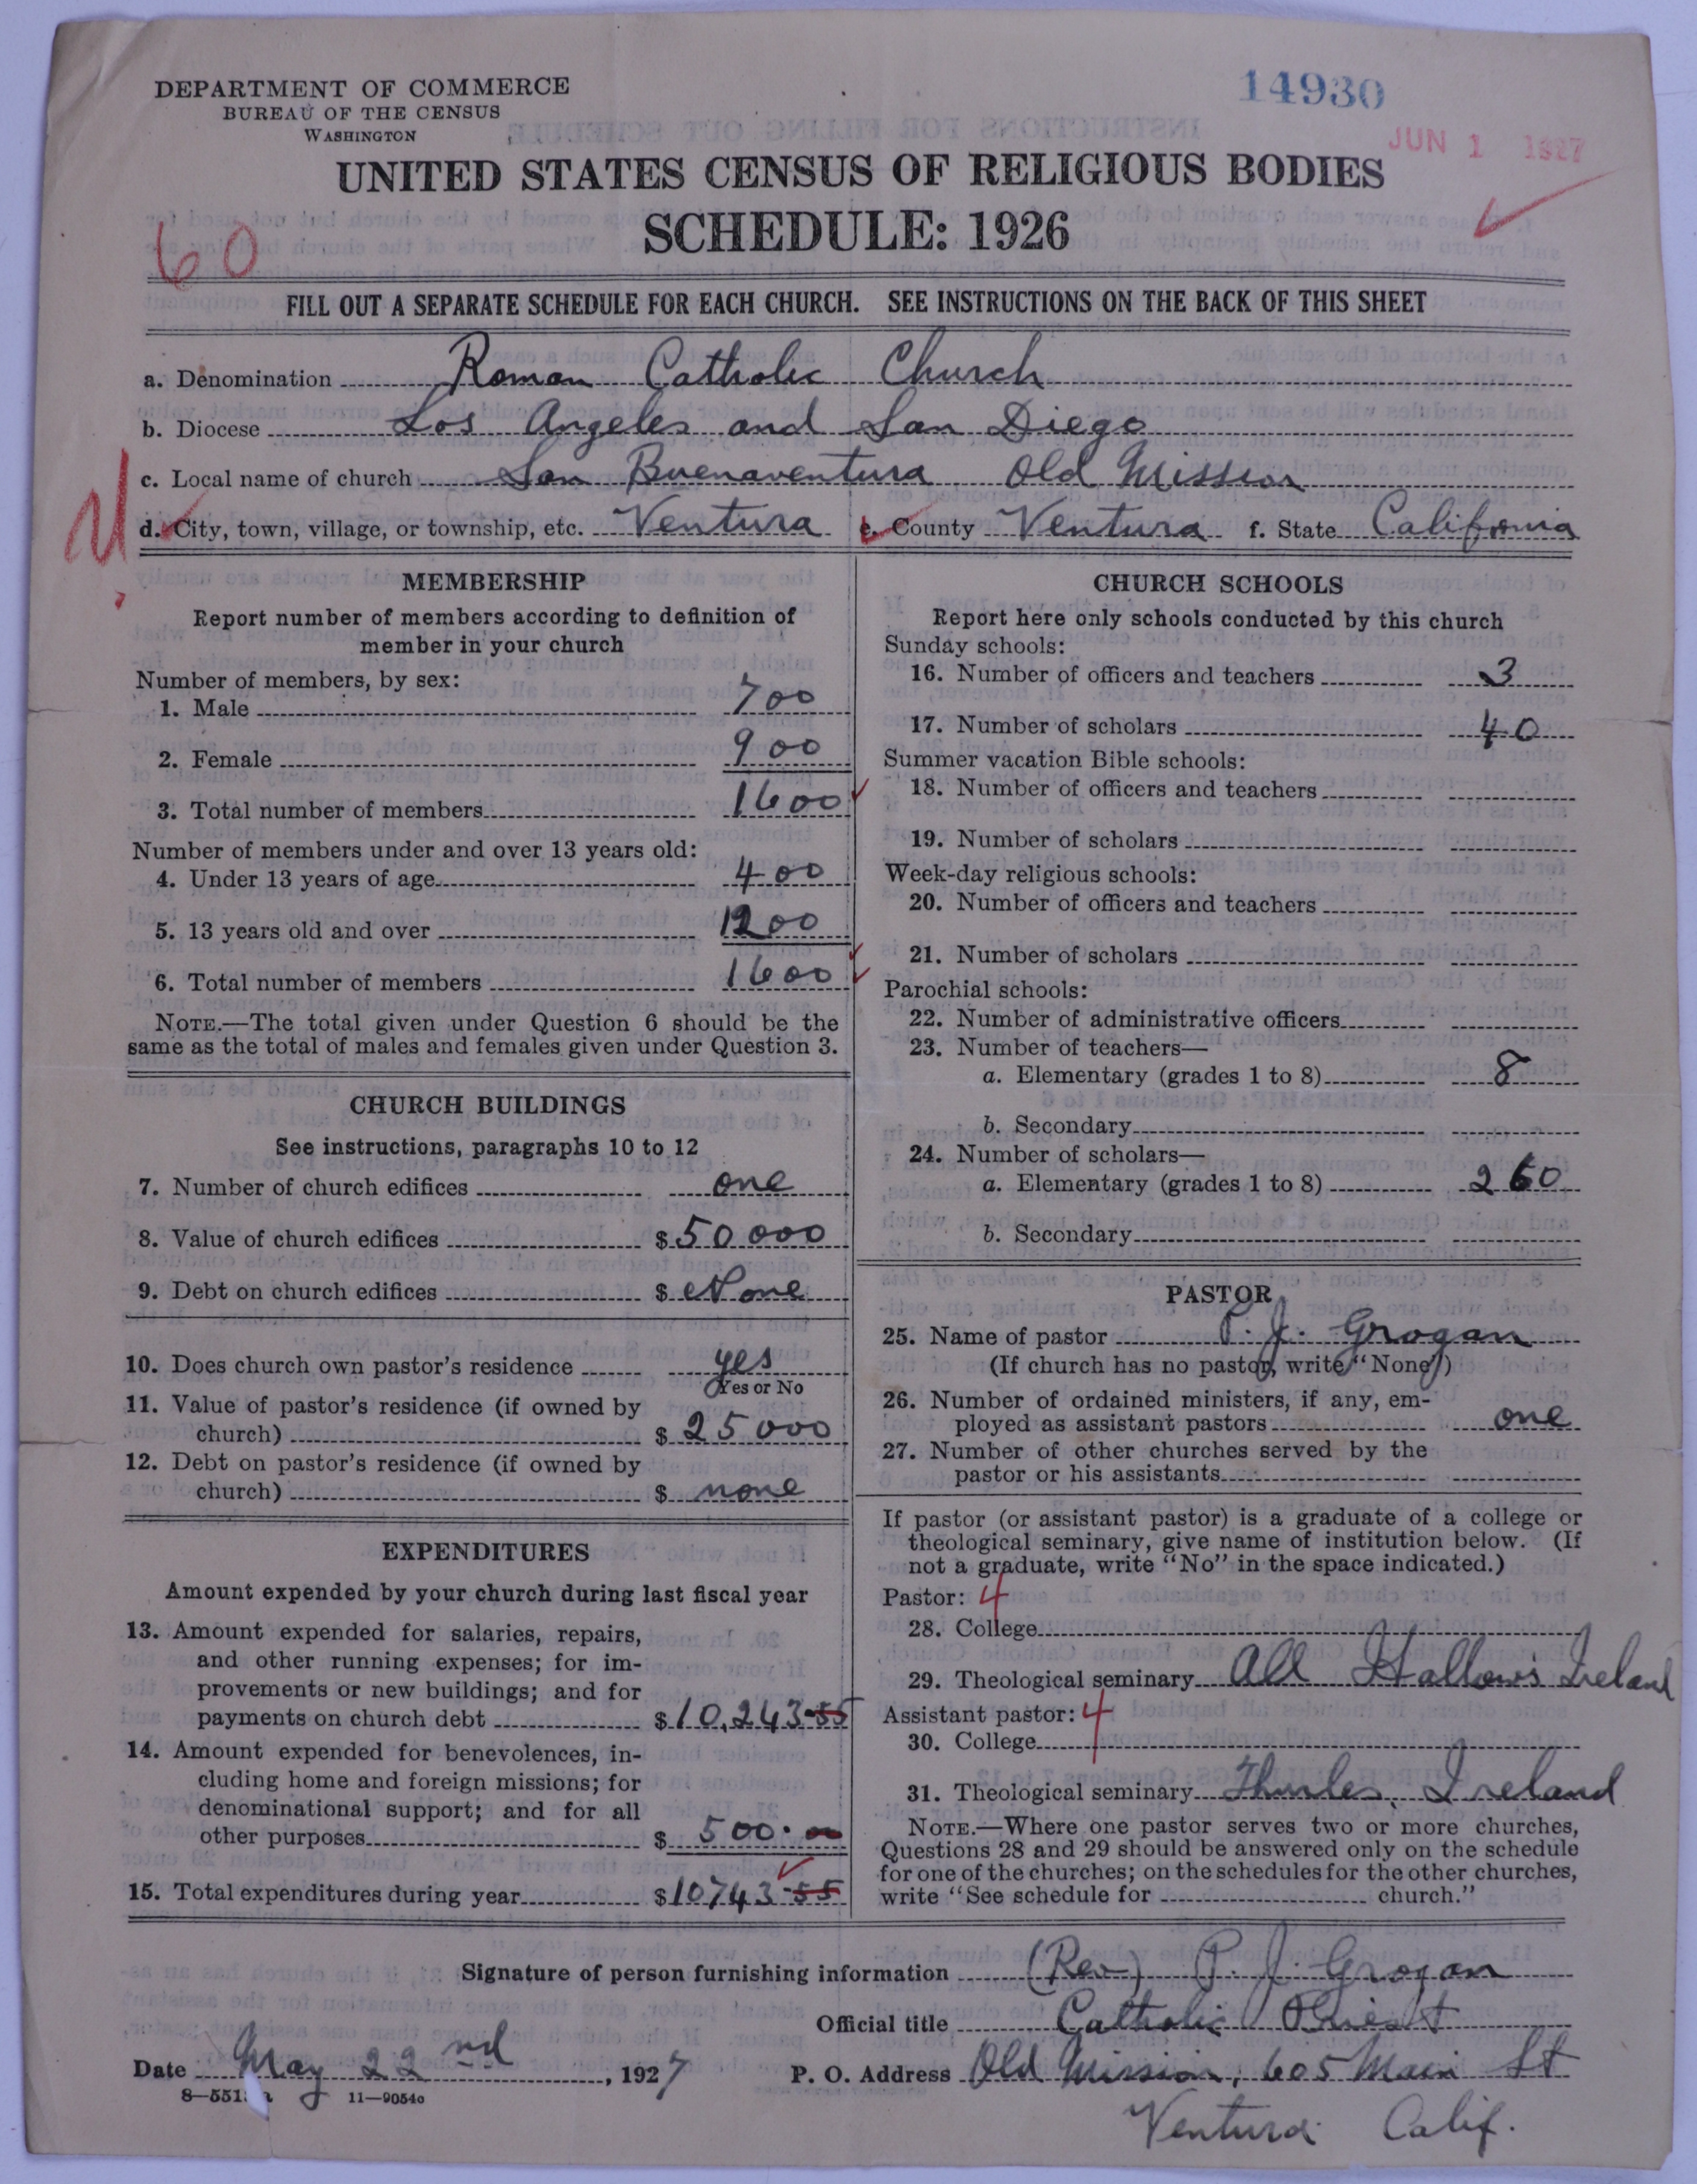 DEPARTMENT OF COMMERCE
BUREAU OF THE CENSUS
WASHINGTON
14930
JUN 1 1927
UNITED STATES CENSUS OF RELIGIOUS BODIES
SCHEDULE: 1926
60
FILL OUT A SEPARATE SCHEDULE FOR EACH CHURCH. SEE INSTRUCTIONS ON THE BACK OF THIS SHEET
a. Denomination Roman Catholic Church
b. Diocese Los Angeles and San Diego
c. Local name of church San Buenaventura Old Mission
d. City, town, village, or township, etc. Ventura e. County Ventura f. State California
MEMBERSHIP
Report number of members according to definition of
member in your church
Number of members, by sex:
1. Male 700
2. Female 900
3. Total number of members 1600
Number of members under and over 13 years old:
4. Under 13 years of age 400
5. 13 years old and over 1200
6. Total number of members 1600
NOTE.—The total given under Question 6 should be the
same as the total of males and females given under Question 3.
CHURCH BUILDINGS
See instructions, paragraphs 10 to 12
7. Number of church edifices one
8. Value of church edifices $50000
9. Debt on church edifices $ None
10. Does church own pastor's residence yes
Yes or No
11. Value of pastor's residence (if owned by
church) $ 25000
12. Debt on pastor's residence (if owned by
church) $ none
EXPENDITURES
Amount expended by your church during last fiscal year
13. Amount expended for salaries, repairs,
and other running expenses; for im-
provements or new buildings; and for
payments on church debt $10,243-55
14. Amount expended for benevolences, in-
cluding home and foreign missions; for
denominational support; and for all
other purposes $ 500.00
15. Total expenditures during year $10743-55
CHURCH SCHOOLS
Report here only schools conducted by this church
Sunday schools:
16. Number of officers and teachers 3
17. Number of scholars 40
Summer vacation Bible schools:
18. Number of officers and teachers
19. Number of scholars
Week-day religious schools:
20. Number of officers and teachers
21. Number of scholars
Parochial schools:
22. Number of administrative officers
23. Number of teachers—
a. Elementary (grades 1 to 8) 8
b. Secondary
24. Number of scholars—
a. Elementary (grades 1 to 8) 260
b. Secondary
PASTOR
25. Name of pastor P. J. Grogan
(If church has no pastor, write "None")
26. Number of ordained ministers, if any, em-
ployed as assistant pastors one
27. Number of other churches served by the
pastor or his assistants
If pastor (or assistant pastor) is a graduate of a college or
theological seminary, give name of institution below. (If
not a graduate, write "No" in the space indicated.)
Pastor: 4
28. College
29. Theological seminary All Hallow's Ireland
Assistant pastor: 4
30. College
31. Theological seminary Thurles, Ireland
NOTE.—Where one pastor serves two or more churches,
Questions 28 and 29 should be answered only on the schedule
for one of the churches; on the schedules for the other churches,
write "See schedule for church."
Signature of person furnishing information (Rev) P. J. Grogan
Official title Catholic Priest
Date May 22nd, 1927 P. O. Address Old Mission, 605 Main St
Ventura Calif.
11—9054c